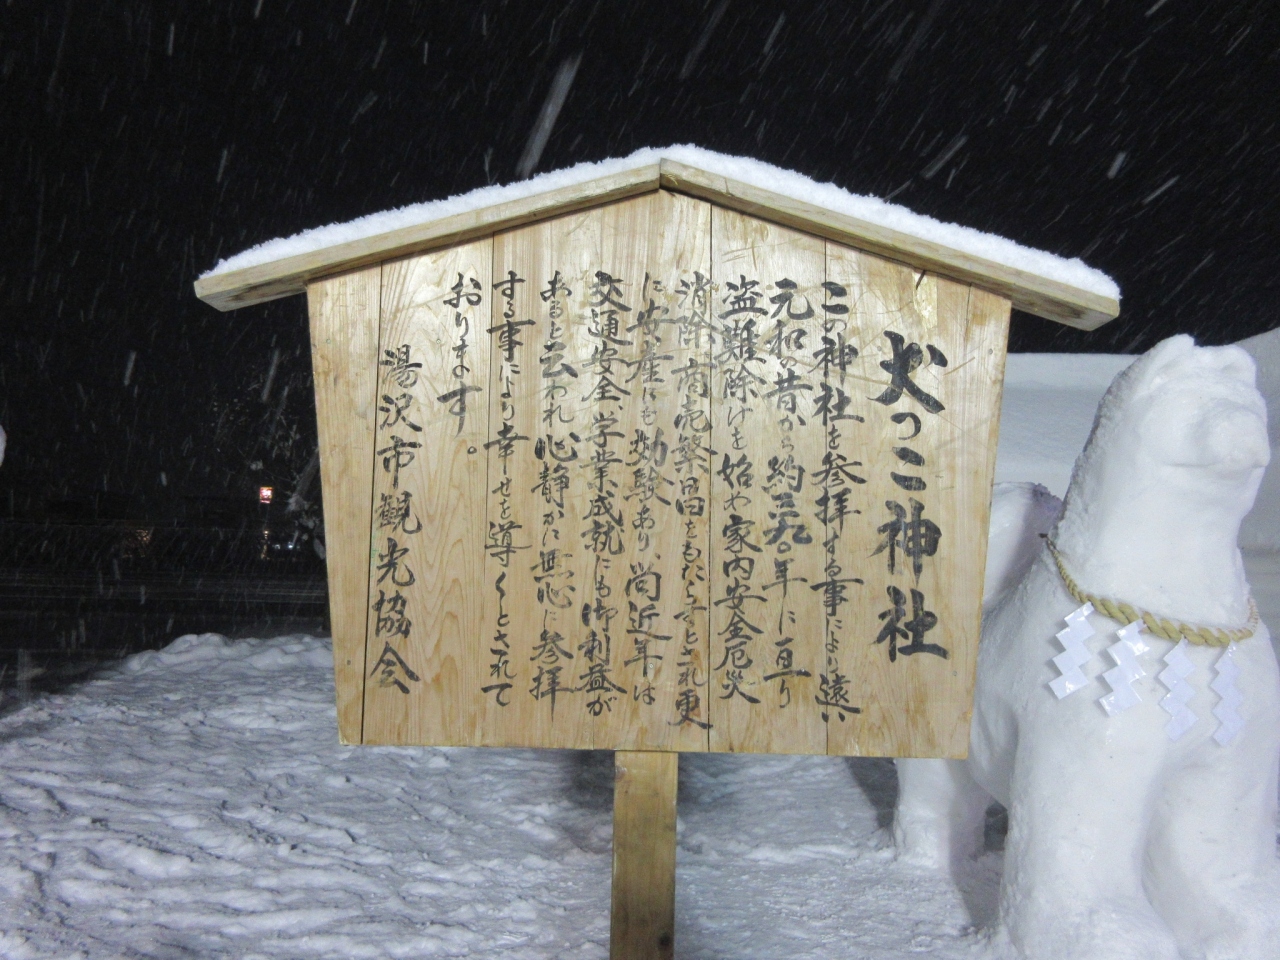 犬っこ神社
この神社を参拝する事により遠い
元和の昔から約三九〇年に亘り
盗難除けを始め家内安全厄災
消除商売繁昌をもたらすとされ更
に安産にも効験あり、尚近年は
交通安全、学業成就にも御利益が
あると云われ心静かに無心に参拝
する事により幸せを導くとされて
おります。
湯沢市観光協会